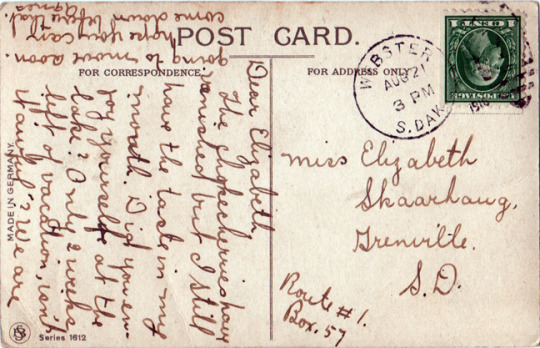 POST CARD.
FOR CORRESPONDENCE.
FOR ADDRESS ONLY
WEBSTER
AUG 21
3 PM
1916
S. DAK.
Dear Elizabeth
The chokecherries have
vanished but I still
have the taste in my
mouth. Did you en-
joy yourself at the
lake? Only 2 weeks
left of vacation, isn't
it awful? We are
going to move soon.
hope you can
come down before that
Miss Elizabeth
Skaarhaug,
Grenville.
S.D.
Route #1.
Box. 57
MADE IN GERMANY.
Series 1612